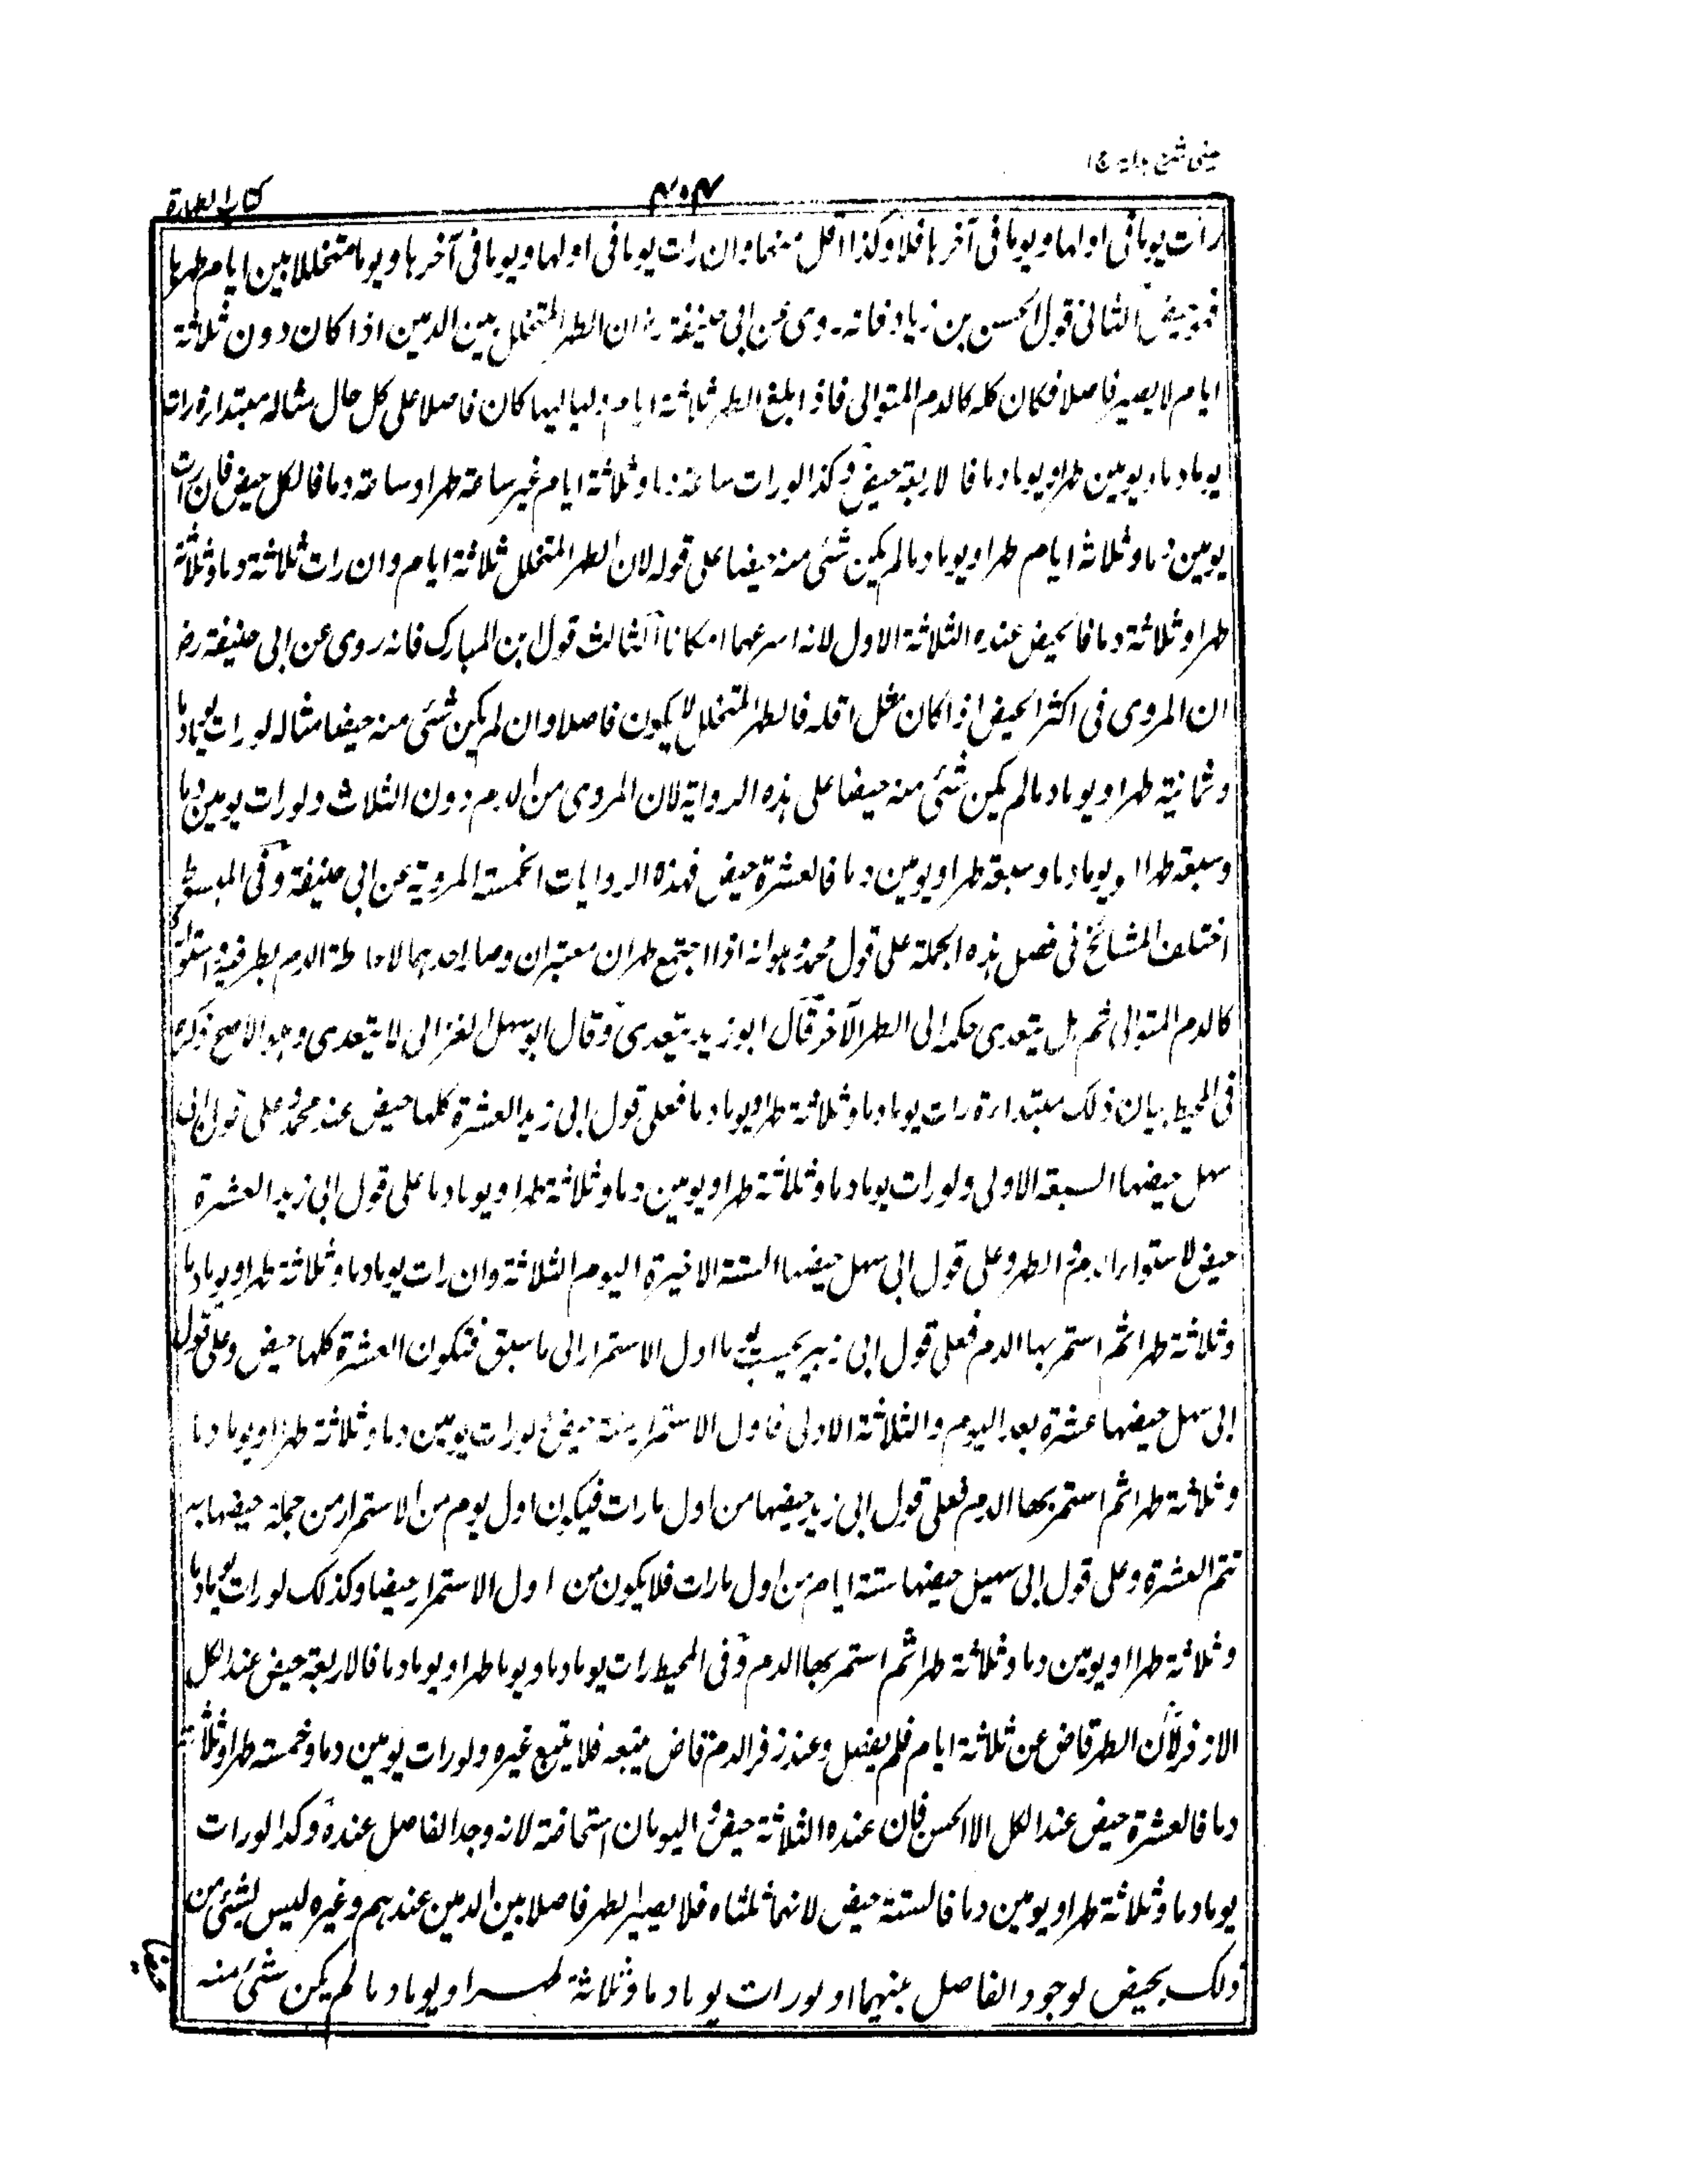 عینی شرح ہدایہ ج ۱
۴۰۴
کتاب الطهارة
رات یوما فی اولها و یوما فی آخرها فلا وکذا اقل منهما وان رات یوما فی اولها و یوما فی آخرها و یوما متخللا بین ایام طهرها
فهو حیض الثانی قول الحسن بن زیاد فانه روی عن ابی حنیفة رض ان الطهر المتخلل بین الدمین اذا کان دون ثلاثة
ایام لا یصیر فاصلا فکان کله کالدم المتوالی فاذا بلغ الطهر ثلاثة ایام ولیالیها کان فاصلا علی کل حال مثاله مبتداءة رات
یوما دما ویومین طهرا ویوما دما فالاربعة حیض وکذا لو رات ساعة دما وثلاثة ایام غیر ساعة طهرا وساعة دما فالکل حیض فان رات
یومین دما وثلاثة ایام طهرا ویوما دما لم یکن شئی منه حیضا علی قوله لان الطهر المتخلل ثلاثة ایام وان رات ثلاثة دما وثلاثة
طهرا وثلاثة دما فالحیض عنده الثلاثة الاول لانه اسرعهما امکانا الثالث قول ابن المبارک فانه روی عن ابی حنیفة رض
ان المروی فی اکثر الحیض اذا کان مثل اقله فالطهر المتخلل لا یکون فاصلا وان لم یکن شئی منه حیضا مثاله لو رات یوما دما
وثمانیة طهرا ویوما دما لم یکن شئی منه حیضا علی هذه الروایة لان المروی من الدم دون الثلاث ولو رات یومین دما
وسبعة طهرا او یوما دما وسبعة طهرا ویومین دما فالعشرة حیض فهذه الروایات الخمسة المرویة عن ابی حنیفة وفی المبسوط
اختلف المشائخ فی فصل هذه الجملة علی قول محمد وهو انه اذا اجتمع طهران معتبران وصار احدهما لاحاطة الدم بطرفیه استوی
کالدم المتوالی ثم هل یتعدی حکمه الی الطهر الآخر قال ابو زید یتعدی وقال ابو سهل الغزالی لا یتعدی وهو الاصح ذکره
فی المحیط بیان ذلک مبتداءة رات یوما دما وثلاثة طهرا ویوما دما فعلی قول ابی زید العشرة کلها حیض عند محمد وعلی قول ابی
سهل حیضها السبعة الاولی ولو رات یوما دما وثلاثة طهرا ویومین دما وثلاثة طهرا ویوما دما علی قول ابی زید العشرة
حیض لاستواء الدم والطهر وعلی قول ابی سهل حیضها الستة الاخیرة الیوم الثلاثة وان رات یوما دما وثلاثة طهرا ویوما دما
وثلاثة طهرا ثم استمر بها الدم فعلی قول ابی زید یحسب یوما اول الاستمرار الی ما سبق فتکون العشرة کلها حیض وعلی قول
ابی سهل حیضها عشرة بعد الیوم والثلاثة الاولی فاول الاستمرار ستة حیض ولو رات یومین دما وثلاثة طهرا ویوما دما
وثلاثة طهرا ثم استمر بها الدم فعلی قول ابی زید حیضها من اول ما رات فیکون اول یوم من الاستمرار من جملة حیضها به
تتم العشرة وعلی قول ابی سهیل حیضها ستة ایام من اول ما رات فلا یکون من اول الاستمرار حیضا وکذلک لو رات یوما دما
وثلاثة طهرا او یومین دما وثلاثة طهرا ثم استمر بها الدم وفی المحیط رات یوما دما ویوما طهرا ویوما دما فالاربعة حیض عند الکل
الا زفر لان الطهر قاض عن ثلاثة ایام فلم یفصل وعند زفر الدم قاض یتبعه فلا یتبع غیره ولو رات یومین دما وخمسة طهرا وثلاثة
دما فالعشرة حیض عند الکل الا الحسن فان عنده الثلاثة حیض والیومان استحاضة لانه وجد الفاصل عنده وکذا لو رات
یوما دما وثلاثة طهرا ویومین دما فالستة حیض لانهما ثلثاه فلا یصیر الطهر فاصلا بین الدمین عندهم وغیره لیس بشئی من
ذلک بحیض لوجود الفاصل بینهما او لو رات یوما دما وثلاثة طهرا ویوما دما لم یکن شئی منه
حیضا